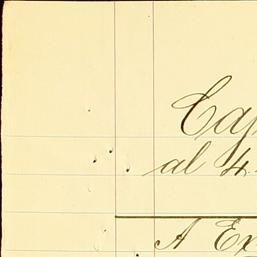 Cap
al 4.
A Ex